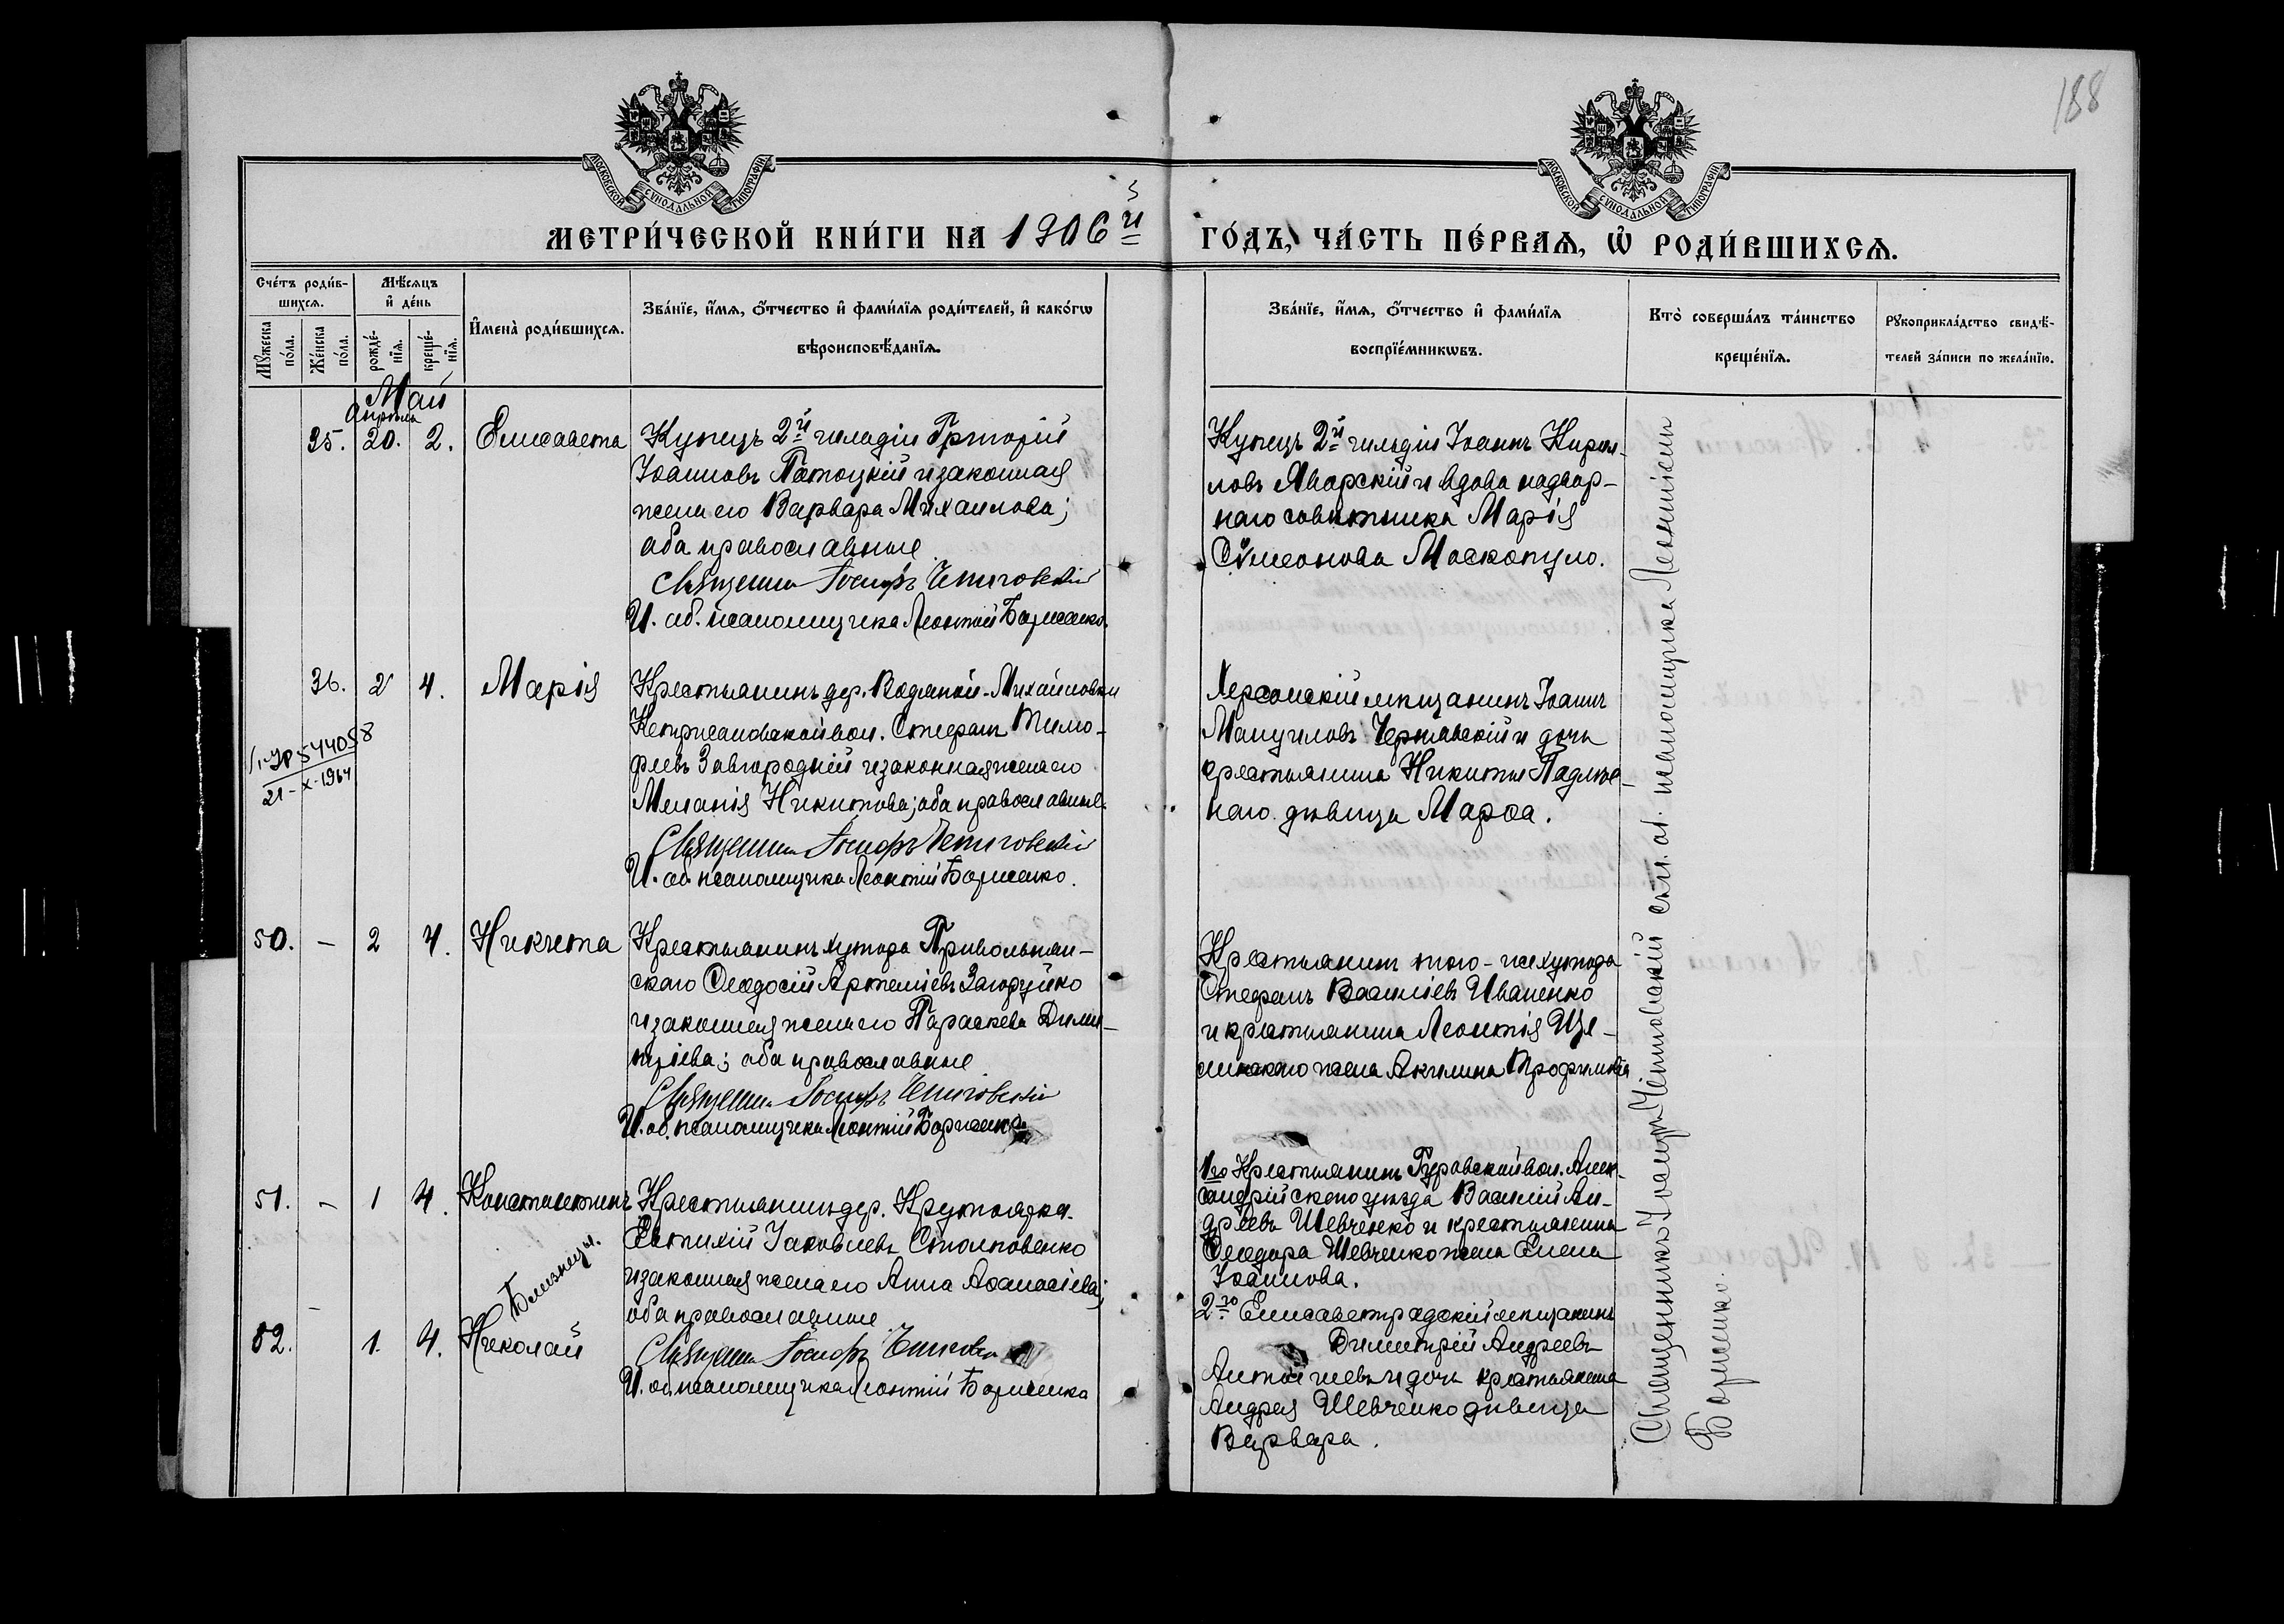 188
МОСКОВСКОЙ СѴНОДАЛЬНОЙ ТИПОГРАФІИ
МОСКОВСКОЙ СѴНОДАЛЬНОЙ ТИПОГРАФІИ
МЕТРИ́ЧЕСКОЙ КНИ́ГИ НА 1906й
ГО́ДЪ, ЧА́СТЬ ПЕ́РВАѦ, Ѽ РОДИ́ВШИХСѦ.
Сче́тъ роди́в-
шихсѧ.
Мѣ́сѧцъ
и҆ де́нь
Мꙋ́жеска
по́ла.
Же́нска
по́ла.
рожде́-
нїѧ.
креще́-
нїѧ.
И҆мена̀ роди́вшихсѧ.
Зва́нїе, и҆́мѧ, ѻ҆́тчество и҆ фами́лїѧ роди́телей, и҆ како́гѡ
вѣроисповѣ́данїѧ.
Зва́нїе, и҆́мѧ, ѻ҆́тчество и҆ фами́лїѧ
воспрїе́мникѡвъ.
Кто̀ соверша́лъ та́инство
креще́нїѧ.
Рꙋкоприкла́дство свидѣ́-
телей за́писи по жела́нїю.
Май
Апрѣля
35. 20. 2. Елисавета
Купецъ 2й гильдіи Григорій
Іоанновъ Патоцкій и законная
жена его Варвара Михаилова;
оба православные
Священник Іосифъ Чепиговскій
И. об. псаломщика Леонтій Борженко.
Купецъ 2й гильдіи Іоаннъ Кирил-
ловъ Яворскій и вдова надвор-
наго совѣтника Марія
Сѵмеонова Москопуло.
36. 2 4. Марія
1-УР 544058
21-X-1964
Крестьянинъ дер. Водяной-Михайловки
вол. Стефанъ Тимо-
феевъ Завгородній и законная жена его
Меланія Никитова; оба православные.
Священник Іосифъ Чепиговскій
И. об. псаломщика Леонтій Борженко.
Херсонскій мѣщанинъ Іоаннъ
Мануиловъ Чернявскій и дочь
крестьянина Никиты
наго. дѣвица Марѳа.
50. - 2 4. Никита
Крестьянинъ хутора Привольнян-
скаго Ѳеодосій Артеміевъ Загоруйко
и законная жена его Параскева Дими-
тріева; оба православные
Священник Іосифъ Чепиговскій
И. об. псаломщика Леонтій Борженко
Крестьянинъ того-же хутора
Стефанъ Василіевъ Иваненко
и крестьянина Леонтія Ще-
жена Акилина Трофимова
51. - 1 4. Константинъ
Близнецы.
52. 1. 4. Николай
Крестьянинъ дер. Крутоярка.
Евтихій Іаковлевъ Столповенко
и законная жена его Анна Аѳанасіева;
оба православные
Священник Іосифъ Чепиговскій
И. об. псаломщика Леонтій Борженко
1го Крестьянинъ Гуровской вол. Алек-
сандрійскаго уѣзда Василій Ан-
дреевъ Шевченко и крестьянина
Ѳеодора Шевченко жена Елена
Іоаннова.
2го Елисаветградскій мѣщанинъ
Димитрій Андреевъ
и дочь крестьянина
Андрея Шевченко дѣвица
Варвара.
Священникъ Іосифъ Чепиговскій съ и. об. псаломщика Леонтіемъ
Борженко.